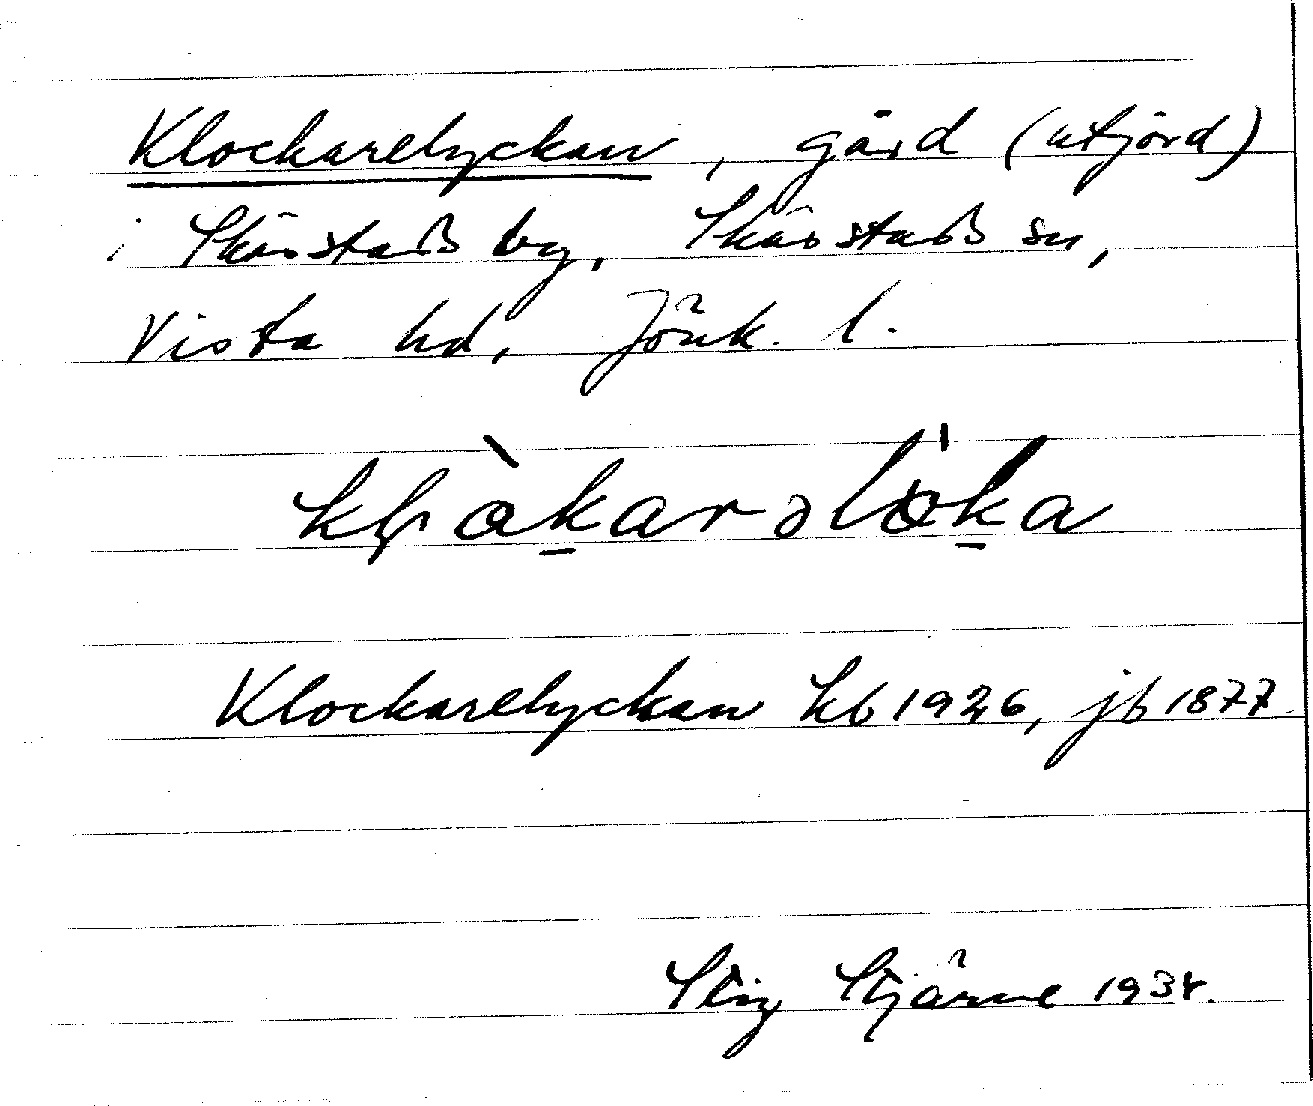 Klockarelyckan, gård (utjord)
i Skärstads by, Skärstads sn,
Vista hd, Jönk. l.
Klockarelyckan kb 1926, jb 1877
Stig Stjärne